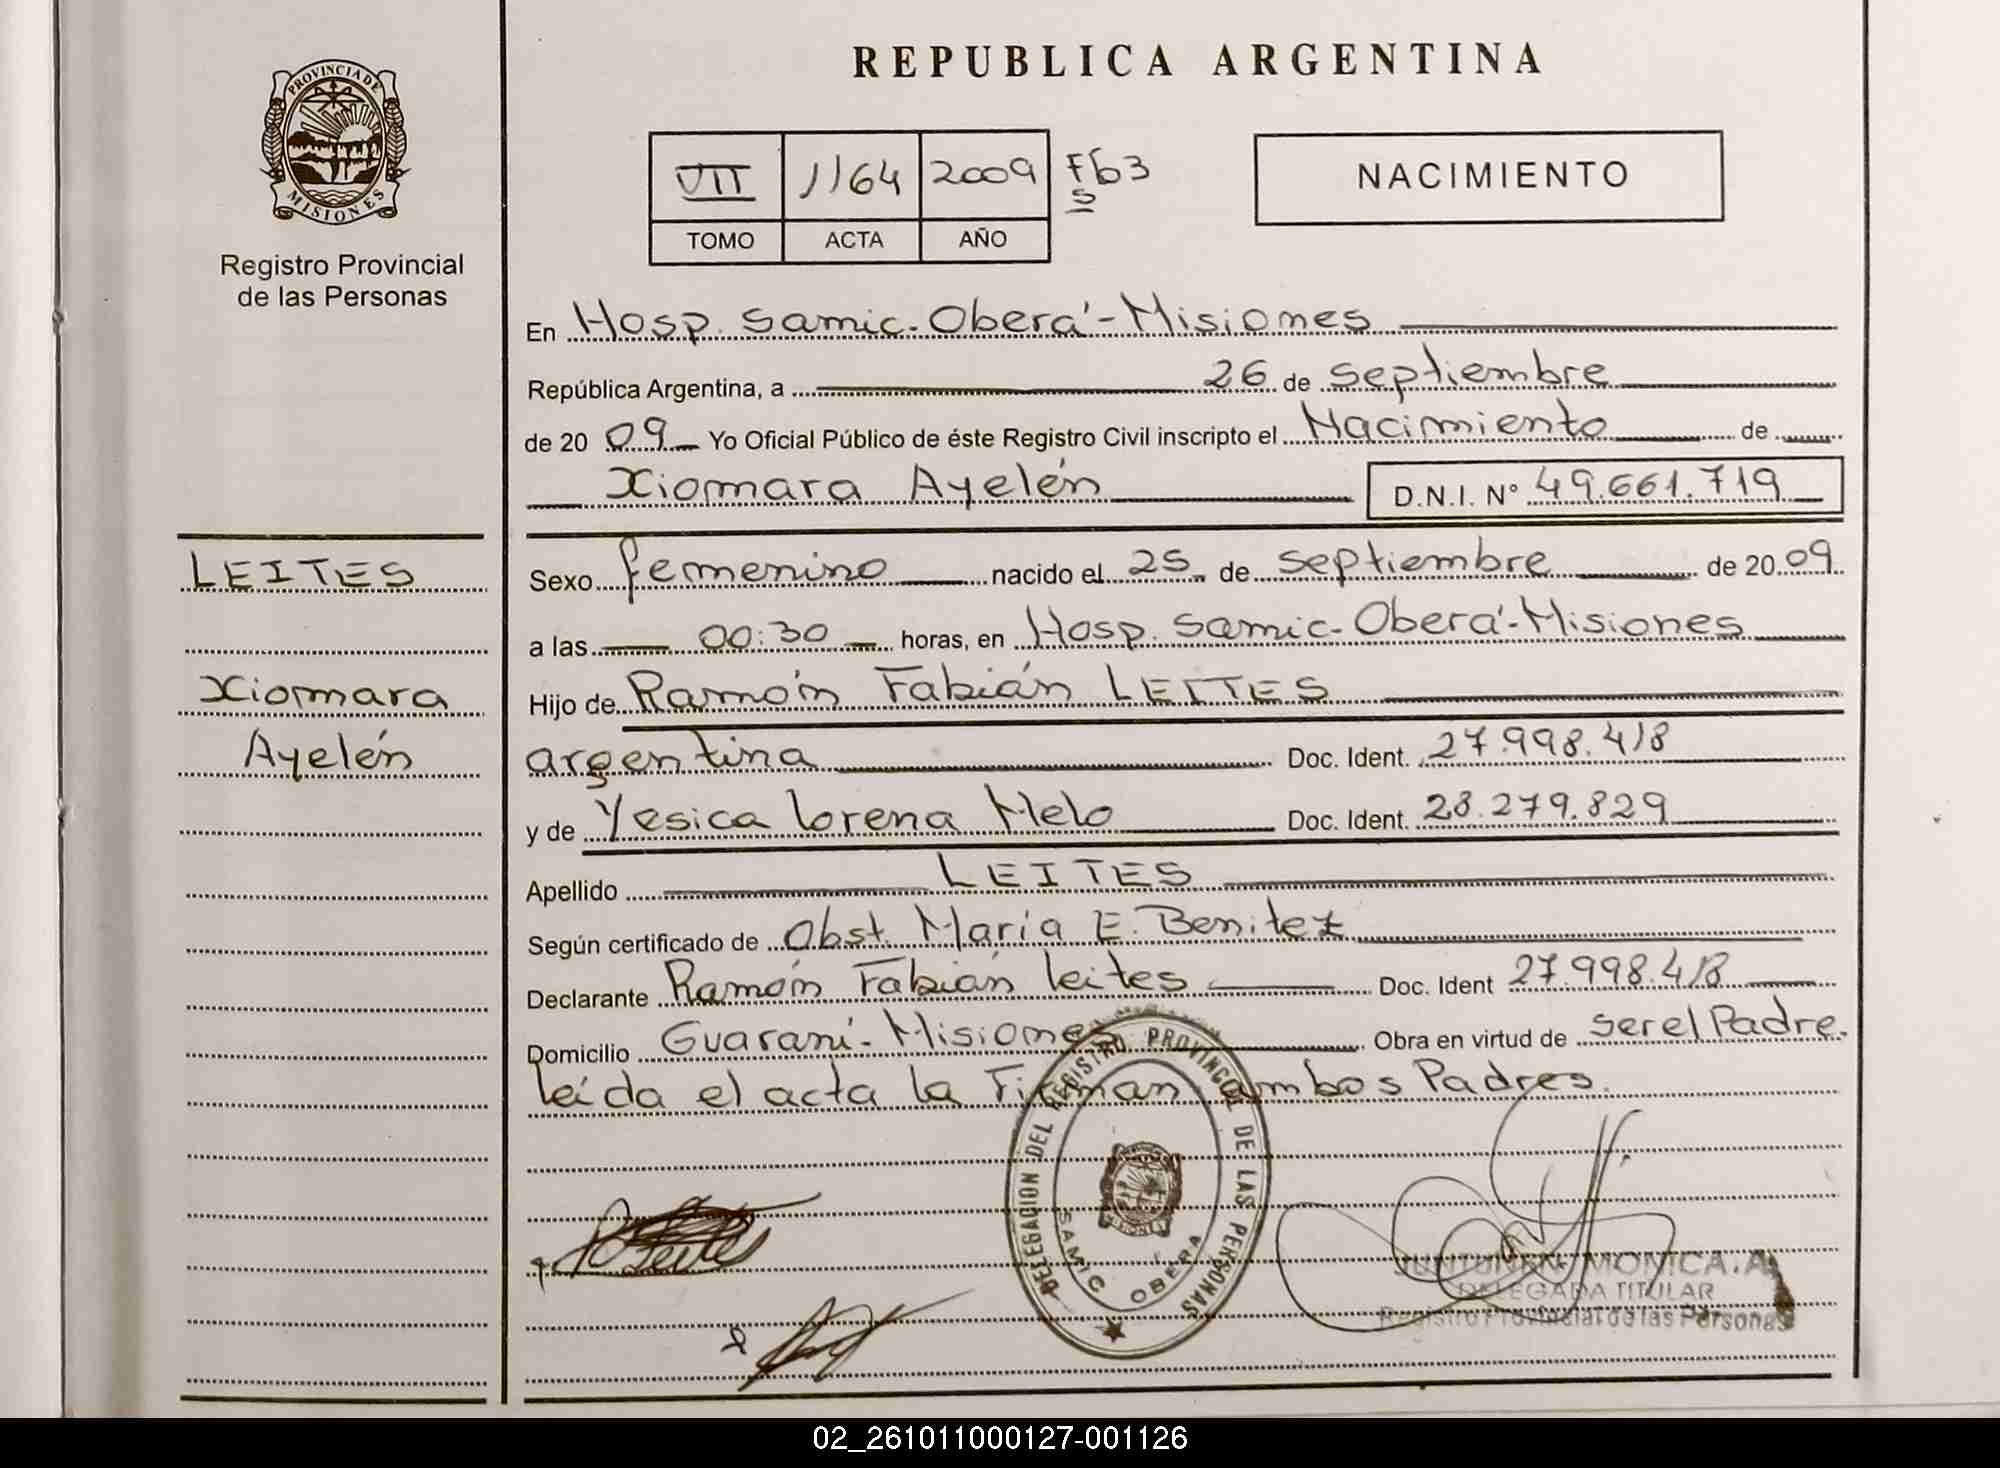 REPUBLICA ARGENTINA
PROVINCIA DE
MISIONES
Registro Provincial
de las Personas
VII 1164 2009 F63
S
TOMO ACTA AÑO
NACIMIENTO
En Hosp. Samic. Oberá - Misiones
República Argentina, a 26 de septiembre
de 20 09 Yo Oficial Público de éste Registro Civil inscripto el Nacimiento de
Xiomara Ayelén D.N.I. N° 49.661.719
LEITES
Xiomara
Ayelén
Sexo femenino nacido el 25 de septiembre de 20 09
a las 00:30 horas, en Hosp. Samic. Oberá - Misiones
Hijo de Ramón Fabián LEITES
argentina Doc. Ident. 27.998.418
y de Yesica Lorena Melo Doc. Ident. 28.279.829
Apellido LEITES
Según certificado de Obst. María E. Benitez
Declarante Ramón Fabián Leites Doc. Ident 27.998.418
Domicilio Guaraní - Misiones Obra en virtud de ser el Padre.
Leída el acta la Firman ambos Padres.
DELEGACION DEL REGISTRO PROVINCIAL DE LAS PERSONAS
SAMIC OBERA
MONICA. A.
DELEGADA TITULAR
Registro Provincial de las Personas
02_261011000127-001126